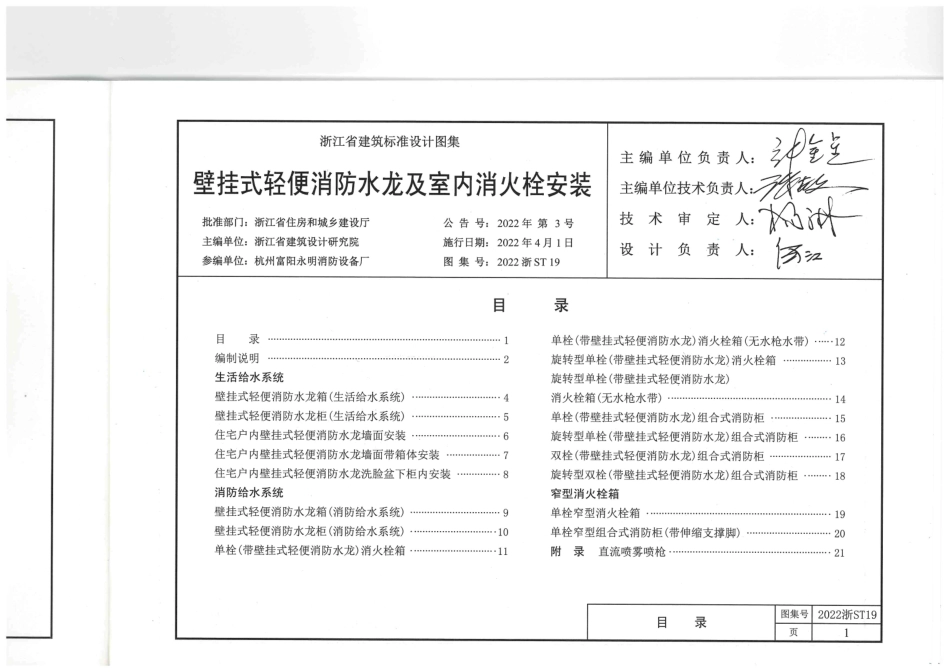 浙江省建筑标准设计图集
壁挂式轻便消防水龙及室内消火栓安装
批准部门：浙江省住房和城乡建设厅
公告号：2022年第3号
主编单位：浙江省建筑设计研究院
施行日期：2022年4月1日
参编单位：杭州富阳永明消防设备厂
图集号：2022浙ST19
主编单位负责人：
主编单位技术负责人：
技术审定人：
设计负责人：
目 录
目 录 1
编制说明 2
生活给水系统
壁挂式轻便消防水龙箱(生活给水系统) 4
壁挂式轻便消防水龙柜(生活给水系统) 5
住宅户内壁挂式轻便消防水龙墙面安装 6
住宅户内壁挂式轻便消防水龙墙面带箱体安装 7
住宅户内壁挂式轻便消防水龙洗脸盆下柜内安装 8
消防给水系统
壁挂式轻便消防水龙箱(消防给水系统) 9
壁挂式轻便消防水龙柜(消防给水系统) 10
单栓(带壁挂式轻便消防水龙)消火栓箱 11
单栓(带壁挂式轻便消防水龙)消火栓箱(无水枪水带) 12
旋转型单栓(带壁挂式轻便消防水龙)消火栓箱 13
旋转型单栓(带壁挂式轻便消防水龙)
消火栓箱(无水枪水带) 14
单栓(带壁挂式轻便消防水龙)组合式消防柜 15
旋转型单栓(带壁挂式轻便消防水龙)组合式消防柜 16
双栓(带壁挂式轻便消防水龙)组合式消防柜 17
旋转型双栓(带壁挂式轻便消防水龙)组合式消防柜 18
窄型消火栓箱
单栓窄型消火栓箱 19
单栓窄型组合式消防柜(带伸缩支撑脚) 20
附 录 直流喷雾喷枪 21
目 录
图集号 2022浙ST19
页 1